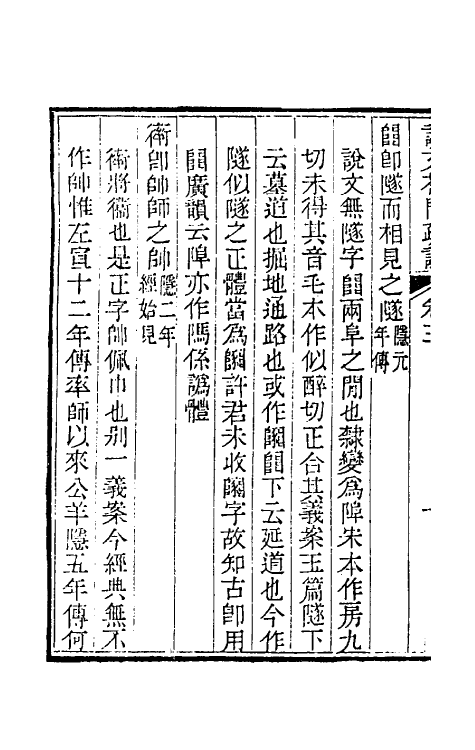 𨺅卽隧而相見之隧隱元年傳
說文無隧字𨺅兩阜之閒也隸變爲陴朱本作房九
切未得其音毛本作似醉切正合其義案玉篇隧下
云墓道也掘地通路也或作𨽵𨺅下云延道也今作
隧似隧之正體當爲𨽵許君未收𨽵字故知古卽用
𨺅廣韻云陴亦作隖係譌體
衛卽帥師之帥隱二年經始見
衛將衞也是正字帥佩巾也别一義案今經典無不
作帥惟左宣十二年傳率師以來公羊隱五年傳何